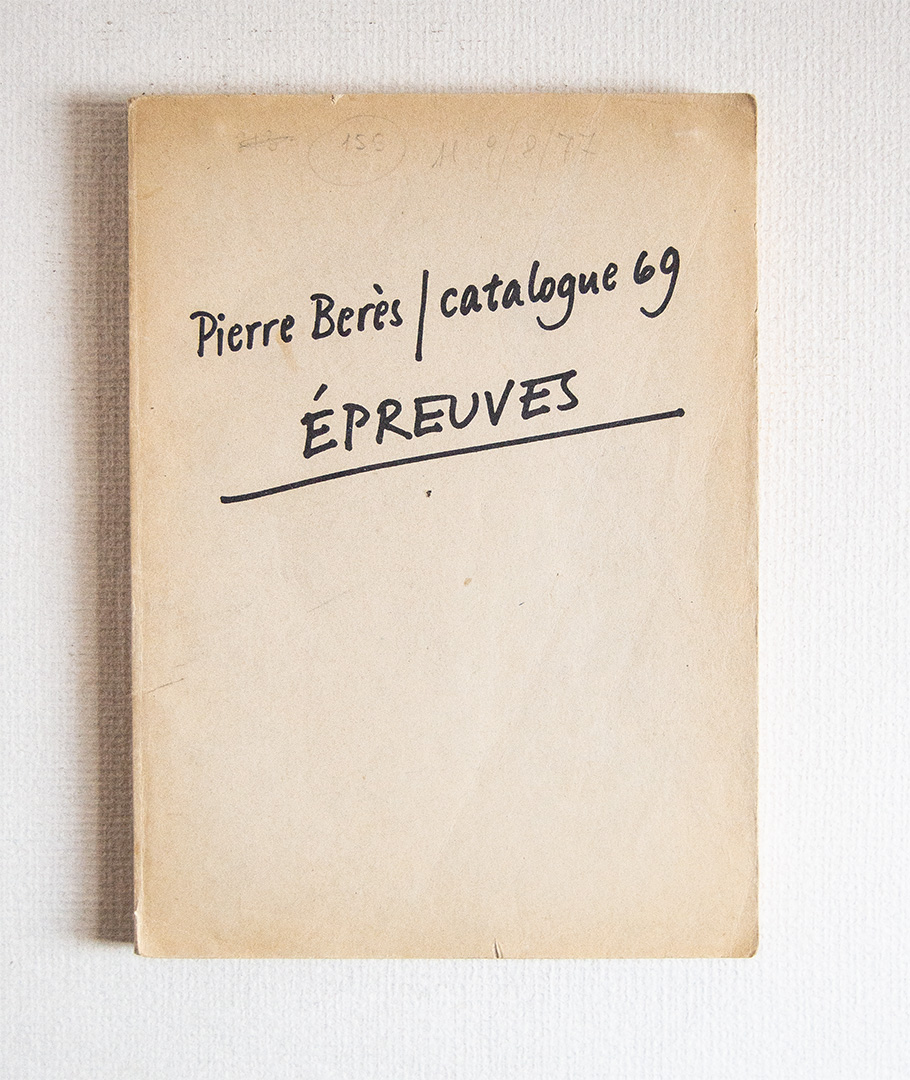 9/8/77
Pierre Berès / catalogue 69
ÉPREUVES